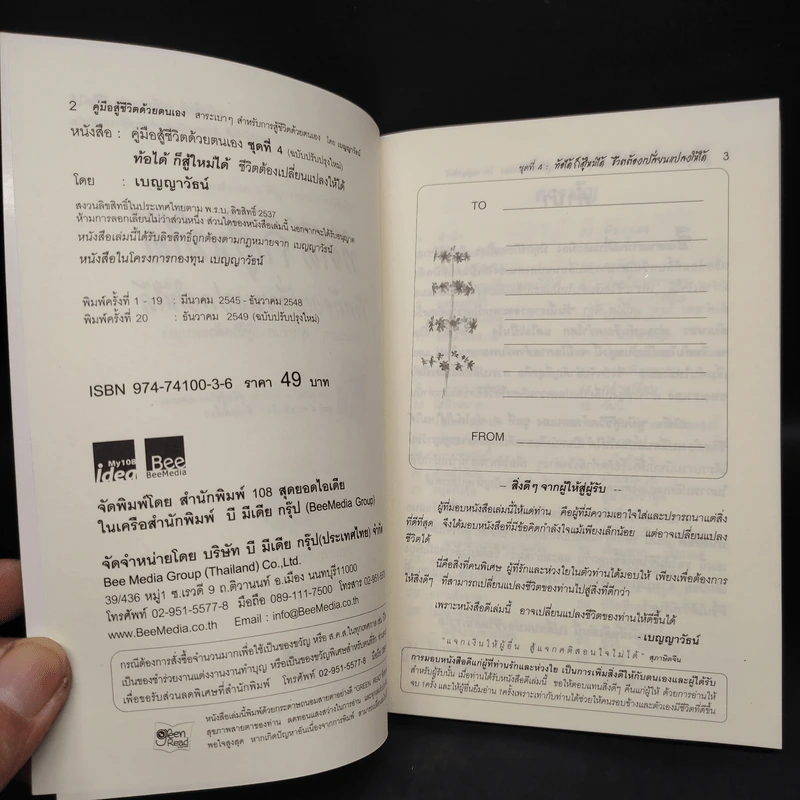 2 คู่มือสู้ชีวิตด้วยตนเอง สาระเบาๆ สำหรับการสู้ชีวิตด้วยตนเอง โดย เบญญาวัธน์
หนังสือ : คู่มือสู้ชีวิตด้วยตนเอง ชุดที่ 4 (ฉบับปรับปรุงใหม่)
ท้อได้ ก็สู้ใหม่ได้ ชีวิตต้องเปลี่ยนแปลงให้ได้
โดย : เบญญาวัธน์
สงวนลิขสิทธิ์ในประเทศไทยตาม พ.ร.บ. ลิขสิทธิ์ 2537
ห้ามการลอกเลียนไม่ว่าส่วนหนึ่ง ส่วนใดของหนังสือเล่มนี้ นอกจากจะได้รับอนุญาต
หนังสือเล่มนี้ได้รับลิขสิทธิ์ถูกต้องตามกฎหมายจาก เบญญาวัธน์
หนังสือในโครงการกองทุน เบญญาวัธน์
พิมพ์ครั้งที่ 1 - 19 : มีนาคม 2545 - ธันวาคม 2548
พิมพ์ครั้งที่ 20 : ธันวาคม 2549 (ฉบับปรับปรุงใหม่)
ISBN 974-74100-3-6 ราคา 49 บาท
My108 idea Bee BeeMedia
จัดพิมพ์โดย สำนักพิมพ์ 108 สุดยอดไอเดีย
ในเครือสำนักพิมพ์ บี มีเดีย กรุ๊ป (BeeMedia Group)
จัดจำหน่ายโดย บริษัท บี มีเดีย กรุ๊ป(ประเทศไทย) จำกัด
Bee Media Group (Thailand) Co.,Ltd.
39/436 หมู่1 ซ.เรวดี 9 ถ.ติวานนท์ อ.เมือง นนทบุรี11000
โทรศัพท์ 02-951-5577-8 มือถือ 089-111-7500 โทรสาร 02-951-
www.BeeMedia.co.th Email : info@BeeMedia.co.th
กรณีต้องการสั่งซื้อจำนวนมากเพื่อใช้เป็นของขวัญ หรือ ส.ค.ส.ในทุกเทศกาล
เป็นของชำร่วยงานแต่งงานงานทำบุญ หรือเป็นของขวัญพิเศษสำหรับคนที่รัก
เพื่อขอรับส่วนลดพิเศษที่สำนักพิมพ์ โทรศัพท์ 02-951-5577-8
Green Read
หนังสือเล่มนี้พิมพ์ด้วยกระดาษถนอมสายตาอย่างดี "GREEN READ
สุขภาพสายตาของท่าน ลดทอนแสงสว่างในการอ่าน
พอใจสูงสุด หากเกิดปัญหาอันเนื่องจากการพิมพ์
ชุดที่ 4 ท้อได้ ก็สู้ใหม่ได้ ชีวิตต้องเปลี่ยนแปลงให้ได้ 3
TO
FROM
-- สิ่งดีๆ จากผู้ให้สู่ผู้รับ --
ผู้ที่มอบหนังสือเล่มนี้ให้แด่ท่าน คือผู้ที่มีความเอาใจใส่และปรารถนาแต่สิ่ง
ที่ดีที่สุด จึงได้มอบหนังสือที่มีข้อคิดกำลังใจแม้เพียงเล็กน้อย แต่อาจเปลี่ยนแปลง
ชีวิตได้
นี่คือสิ่งที่คนพิเศษ ผู้ที่รักและห่วงใยในตัวท่านได้มอบให้ เพียงเพื่อต้องการ
ให้สิ่งดีๆ ที่สามารถเปลี่ยนแปลงชีวิตของท่านไปสู่สิ่งที่ดีกว่า
เพราะหนังสือดีเล่มนี้ อาจเปลี่ยนแปลงชีวิตของท่านให้ดีขึ้นได้
- เบญญาวัธน์
"แจกเงินให้ผู้อื่น สู้แจกคติสอนใจไม่ได้" สุภาษิตจีน
การมอบหนังสือดีแก่ผู้ที่ท่านรักและห่วงใย เป็นการเพิ่มสิ่งดีให้กับตนเองและผู้ได้รับ
สำหรับผู้รับนั้น เมื่อท่านได้รับหนังสือดีเล่มนี้ ขอให้ตอบแทนสิ่งดีๆ คืนแก่ผู้ให้ ด้วยการอ่านให้
จบ 1ครั้ง และให้ผู้อื่นยืมอ่าน 1ครั้งเพราะเท่ากับท่านได้ช่วยให้คนรอบข้างและตัวเองมีชีวิตที่ดีขึ้น